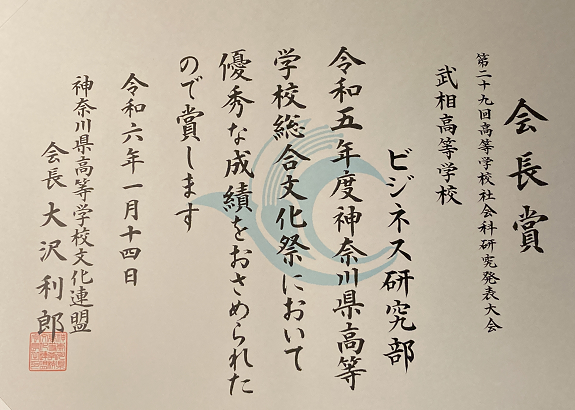 会長賞
第二十九回高等学校社会科研究発表大会
武相高等学校
ビジネス研究部
令和五年度神奈川県高等
学校総合文化祭において
優秀な成績をおさめられた
ので賞します
令和六年一月十四日
神奈川県高等学校文化連盟
会長 大沢利郎